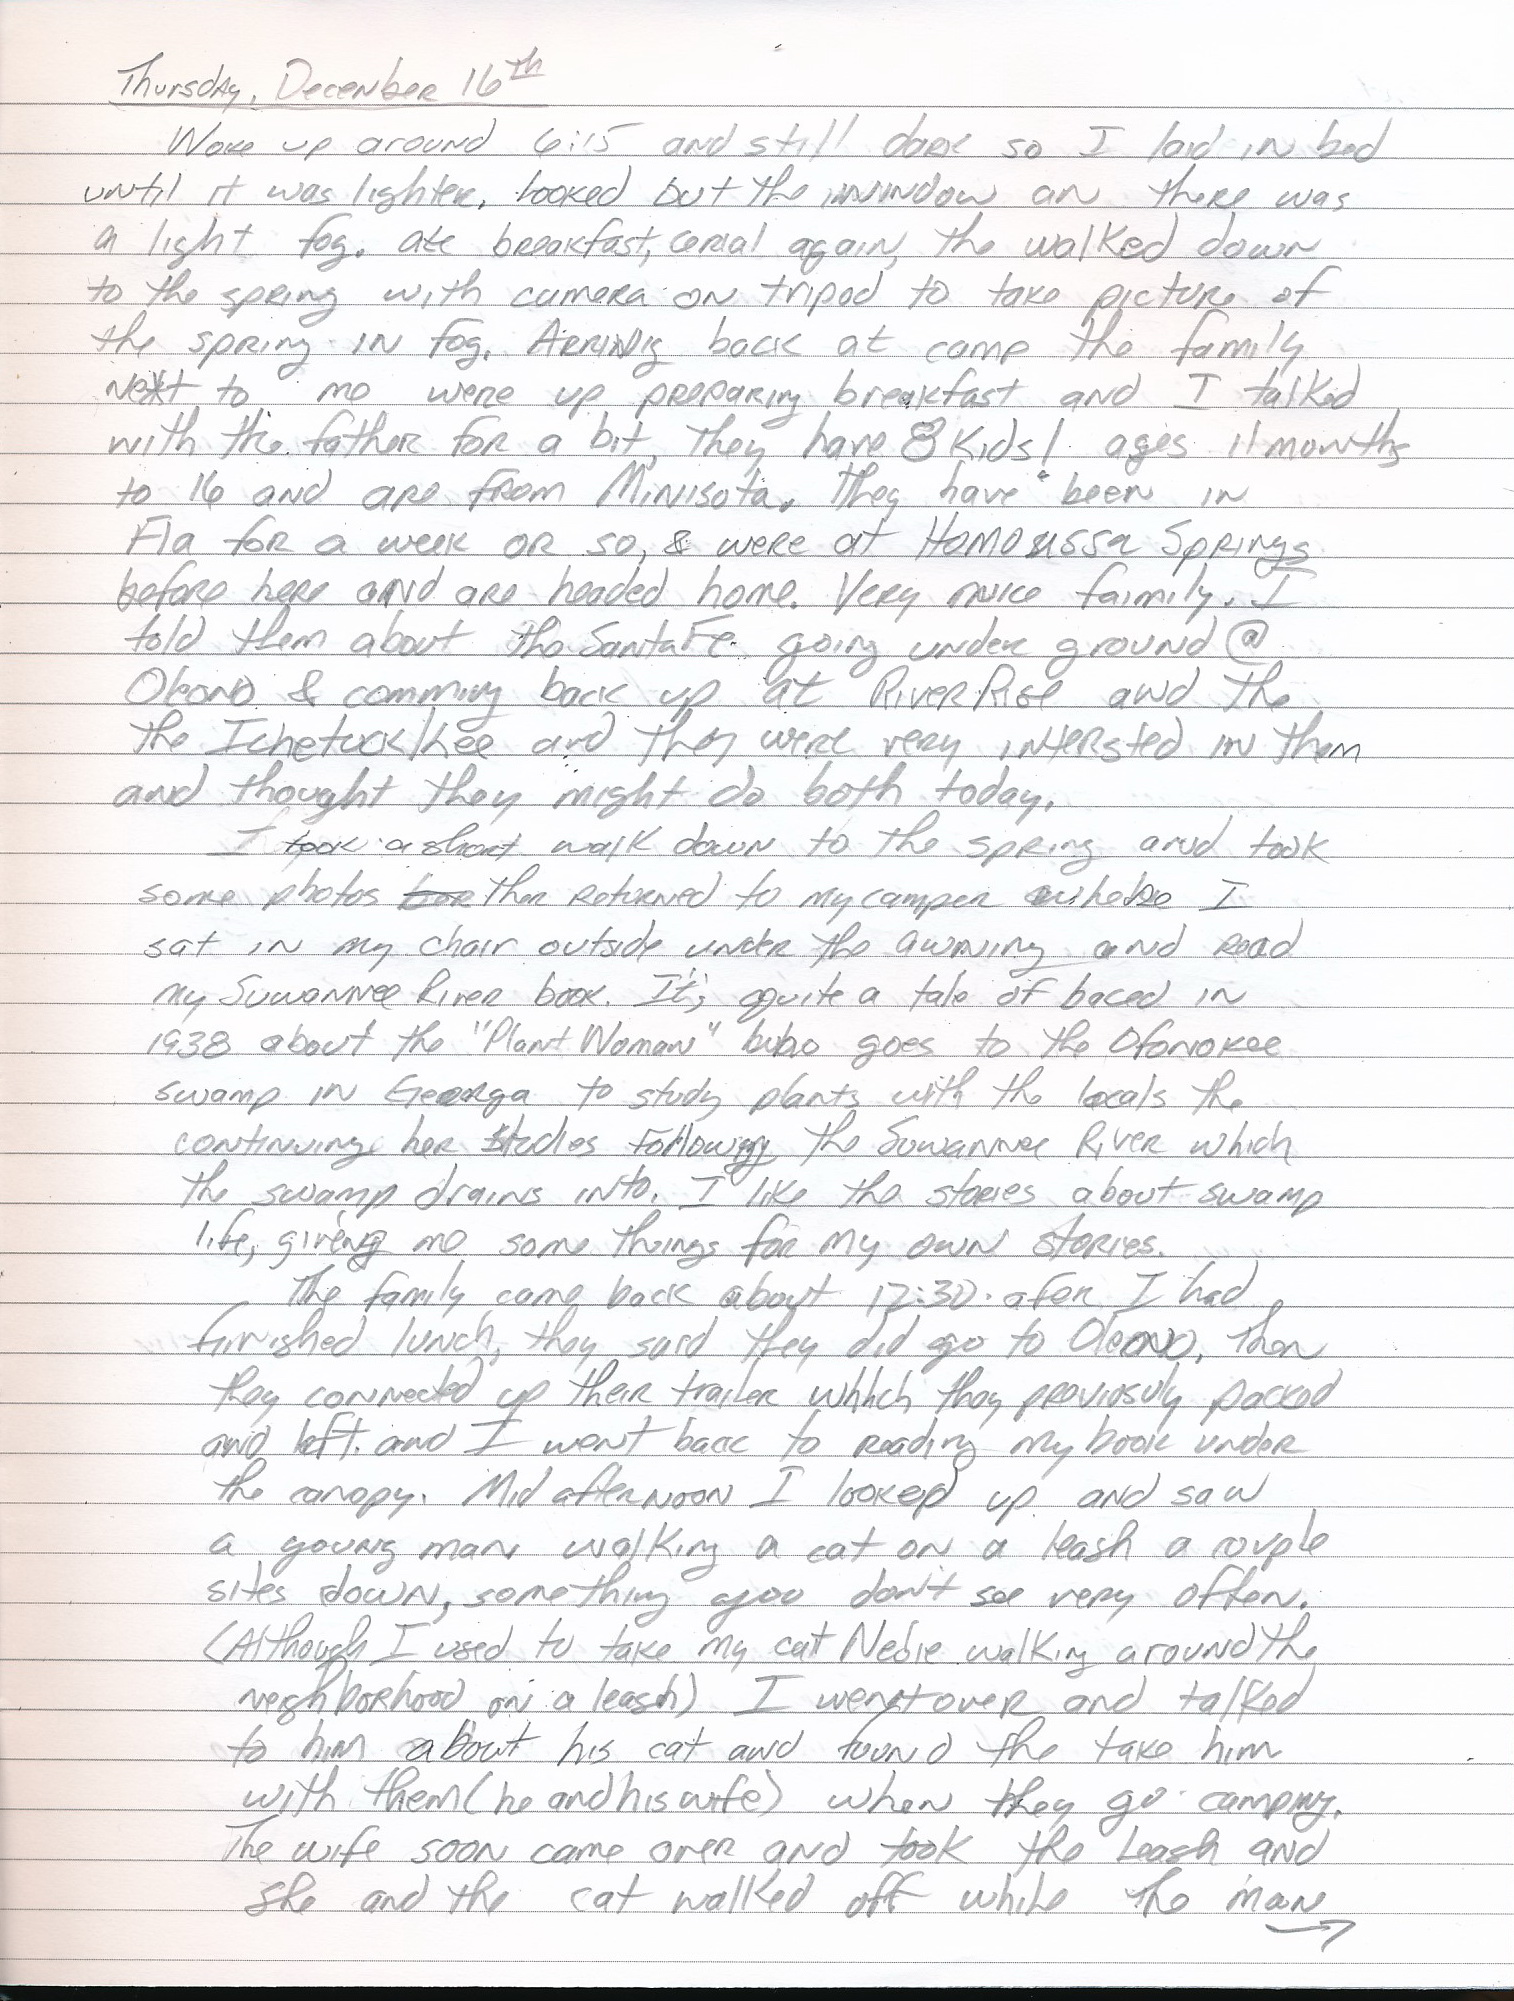 Thursday, December 16th
Woke up around 6:15 and still dark so I laid in bed
until it was lighter, looked out the window an there was
a light fog. ate breakfast, cerial again, the walked down
to the spring with camera on tripod to take picture of
the spring in fog. Arriving back at camp the family
next to me were up preparing breakfast and I talked
with the father for a bit, They have 8 kids! ages 11 months
to 16 and are from Minisota. They have been in
Fla for a week or so, & were at Homosussa Springs
before here and are headed home. Very nice faimily. I
told them about the Santa Fe going under ground @
Oleono & comming back up at River Rise and the
the Ichetucklkee and they were very intersted in them
and thought they might do both today.
I took a short walk down to the spring and took
some photos then returned to my camper where I
sat in my chair outside under the awning and read
my Suwannee River book. It's quite a tale of baced in
1938 about the "Plant Woman" who goes to the Ofonokee
swamp in Georga to study plants with the locals the
continuing her studies following the Suwannee River which
the swamp drains into. I like the stories about swamp
life, giveing me some things for my own stories.
The family came back about 12:30 afer I had
finished lunch, they said they did go to Oleono, then
they connected up their trailer whhch they previosuly packed
and left. and I went back to reading my book under
the canopy. Mid afternoon I looked up and saw
a young man walking a cat on a leash a couple
sites down, something you don't see very often.
(Although I used to take my cat Nebie walking around the
neighborhood on a leash) I went over and talked
to him about his cat and found the take him
with them (he and his wife) when they go camping.
The wife soon came over and took the leash and
she and the cat walked off while the man